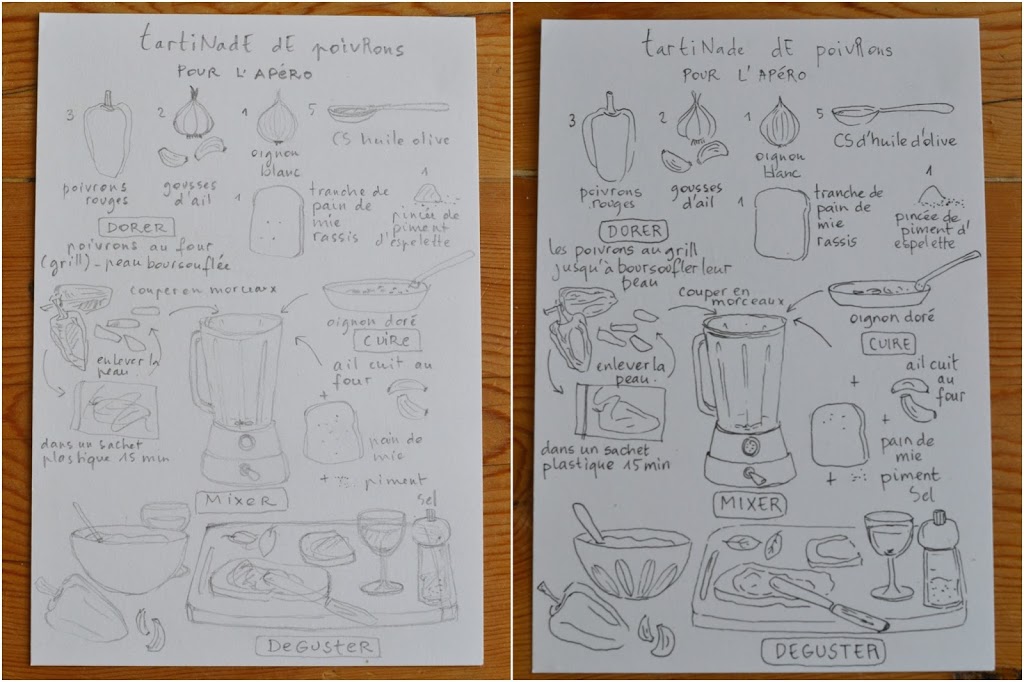 tartiNadE dE poivRons
POUR L'APÉRO
3
2
1
5
CS huile olive
oignon
blanc
poivrons
rouges
gousses
d'ail
1
tranche de
pain de
mie
rassis
1
pincée de
piment
d'espelette
DORER
poivrons au four
(grill) - peau boursouflée
couper en morceaux
oignon doré
CUIRE
enlever la
peau.
ail cuit au
four
+
dans un sachet
plastique 15 min
pain de
mie
+ piment
Sel
MixER
DeGUSTER
tartiNade dE poivRons
POUR L'APÉRO
3
2
1
5
CS d'huile d'olive
oignon
blanc
poivrons
rouges
gousses
d'ail
1
tranche de
pain de
mie
rassis
1
pincée de
piment d'
espelette
DORER
les poivrons au grill
jusqu'à boursoufler leur
peau
couper en
morceaux
oignon doré
CUIRE
enlever la
peau.
+
ail cuit
au
four
+
dans un sachet
plastique 15 min
pain de
mie
+ piment
Sel
MIXER
DEGUSTER